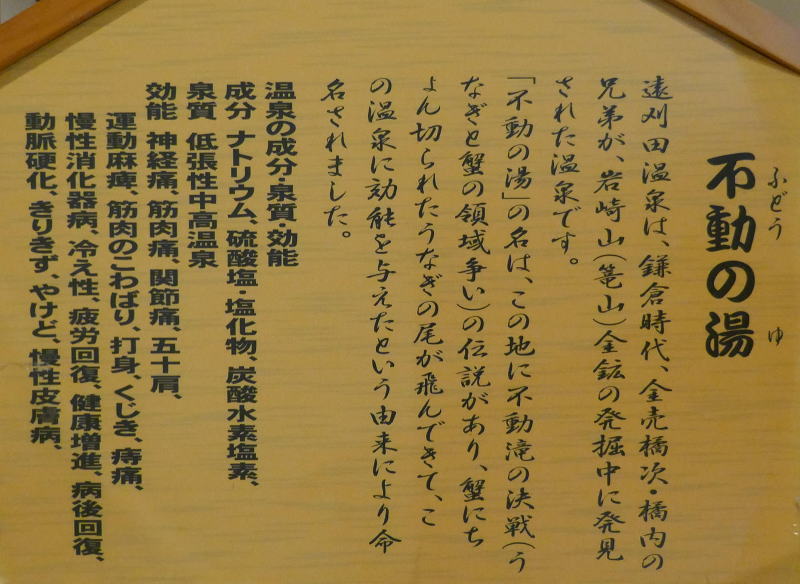 不動の湯
ふどう ゆ
遠刈田温泉は、鎌倉時代、金売橘次・橘内の
兄弟が、岩崎山(篭山)金鉱の発掘中に発見
された温泉です。
「不動の湯」の名は、この地に不動滝の決戦(う
なぎと蟹の領域争い)の伝説があり、蟹にち
ょん切られたうなぎの尾が飛んできて、こ
の温泉に効能を与えたという由来により命
名されました。
温泉の成分・泉質・効能
成分 ナトリウム、硫酸塩・塩化物、炭酸水素塩素、
泉質 低張性中高温泉
効能 神経痛、筋肉痛、関節痛、五十肩、
運動麻痺、筋肉のこわばり、打身、くじき、痔痛、
慢性消化器病、冷え性、疲労回復、健康増進、病後回復、
動脈硬化、きりきず、やけど、慢性皮膚病、